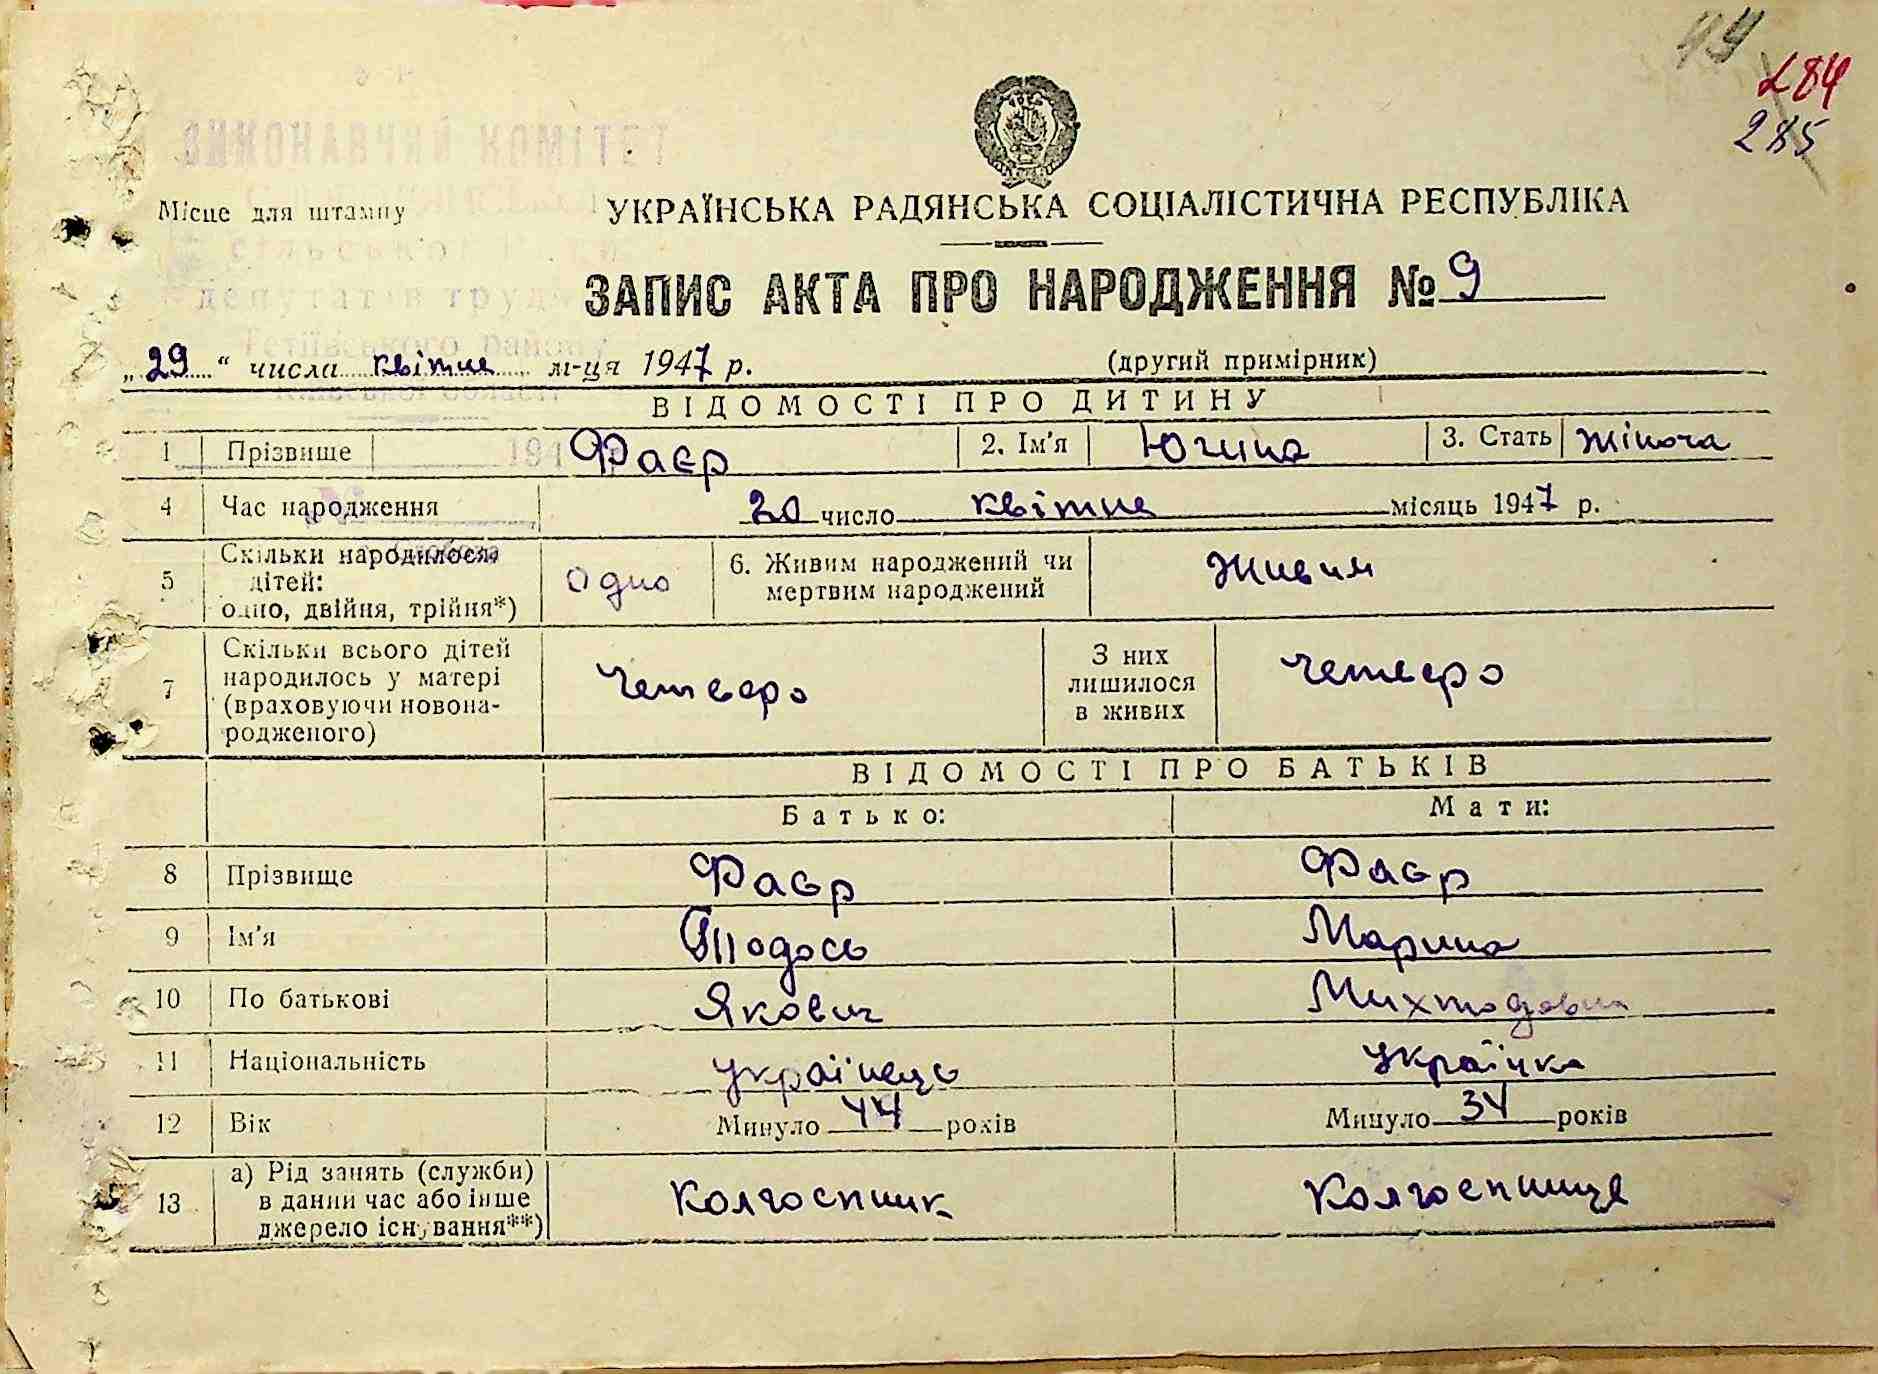 44
284
285
ВИКОНАВЧИЙ КОМІТЕТ
Місце для штампу
УКРАЇНСЬКА РАДЯНСЬКА СОЦІАЛІСТИЧНА РЕСПУБЛІКА
сільської ради
депутатів труд
Тетіївського району
Київської області
ЗАПИС АКТА ПРО НАРОДЖЕННЯ № 9
„29“ числа квітня м-ця 1947 р. (другий примірник)
ВІДОМОСТІ ПРО ДИТИНУ
1 Прізвище Фаєр 2. Ім'я Югина 3. Стать жіноча
194
4 Час народження 20 число квітня місяць 1947 р.
5 Скільки народилося дітей: одно, двійня, трійня*) одно 6. Живим народжений чи мертвим народжений Живим
7 Скільки всього дітей народилось у матері (враховуючи новонародженого) четверо З них лишилося в живих четверо
ВІДОМОСТІ ПРО БАТЬКІВ
Батько: Мати:
8 Прізвище Фаєр Фаєр
9 Ім'я Тодось Марина
10 По батькові Якович
11 Національність українець українка
12 Вік Минуло 44 років Минуло 34 років
13 а) Рід занять (служби) в даний час або інше джерело існування**) Колгоспник Колгоспниця